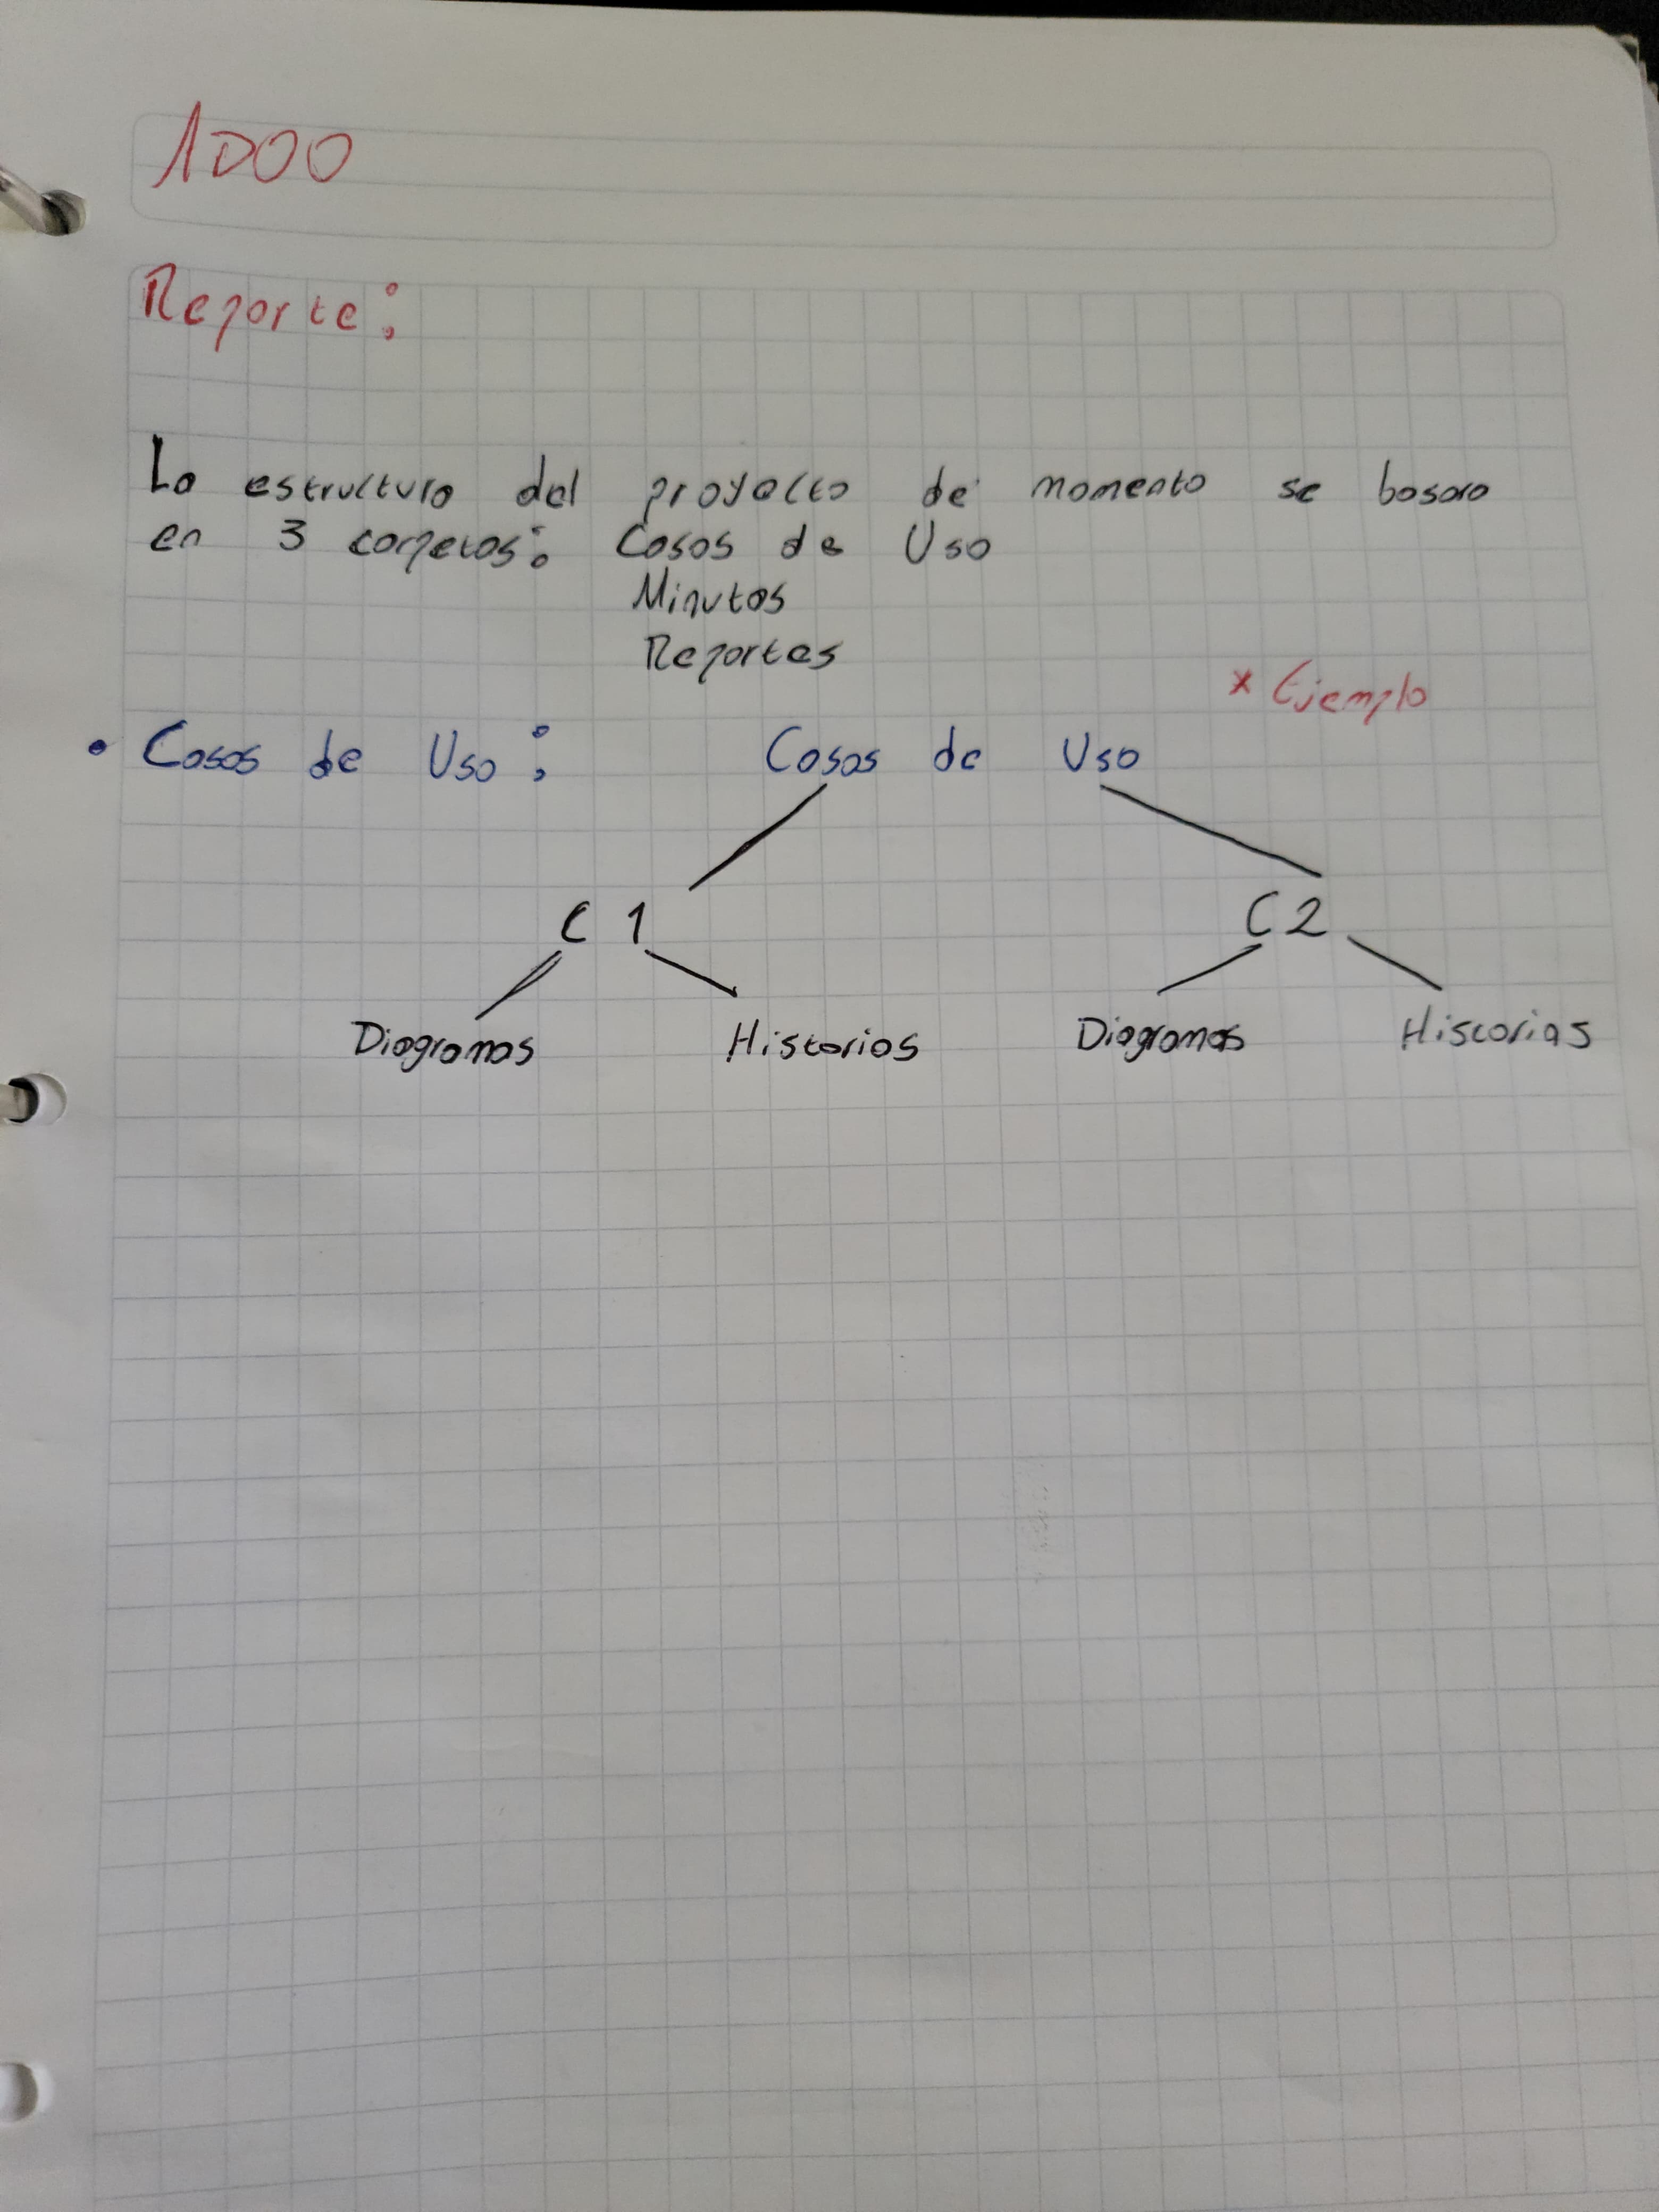 ADOO
Reporte:
La estructura del proyecto de momento se basara
en 3 carpetas: Casos de Uso
Minutas
Reportes
* Ejemplo
• Casos de Uso: Casos de Uso
C 1 C2
Diagramas Historias Diagramas Historias